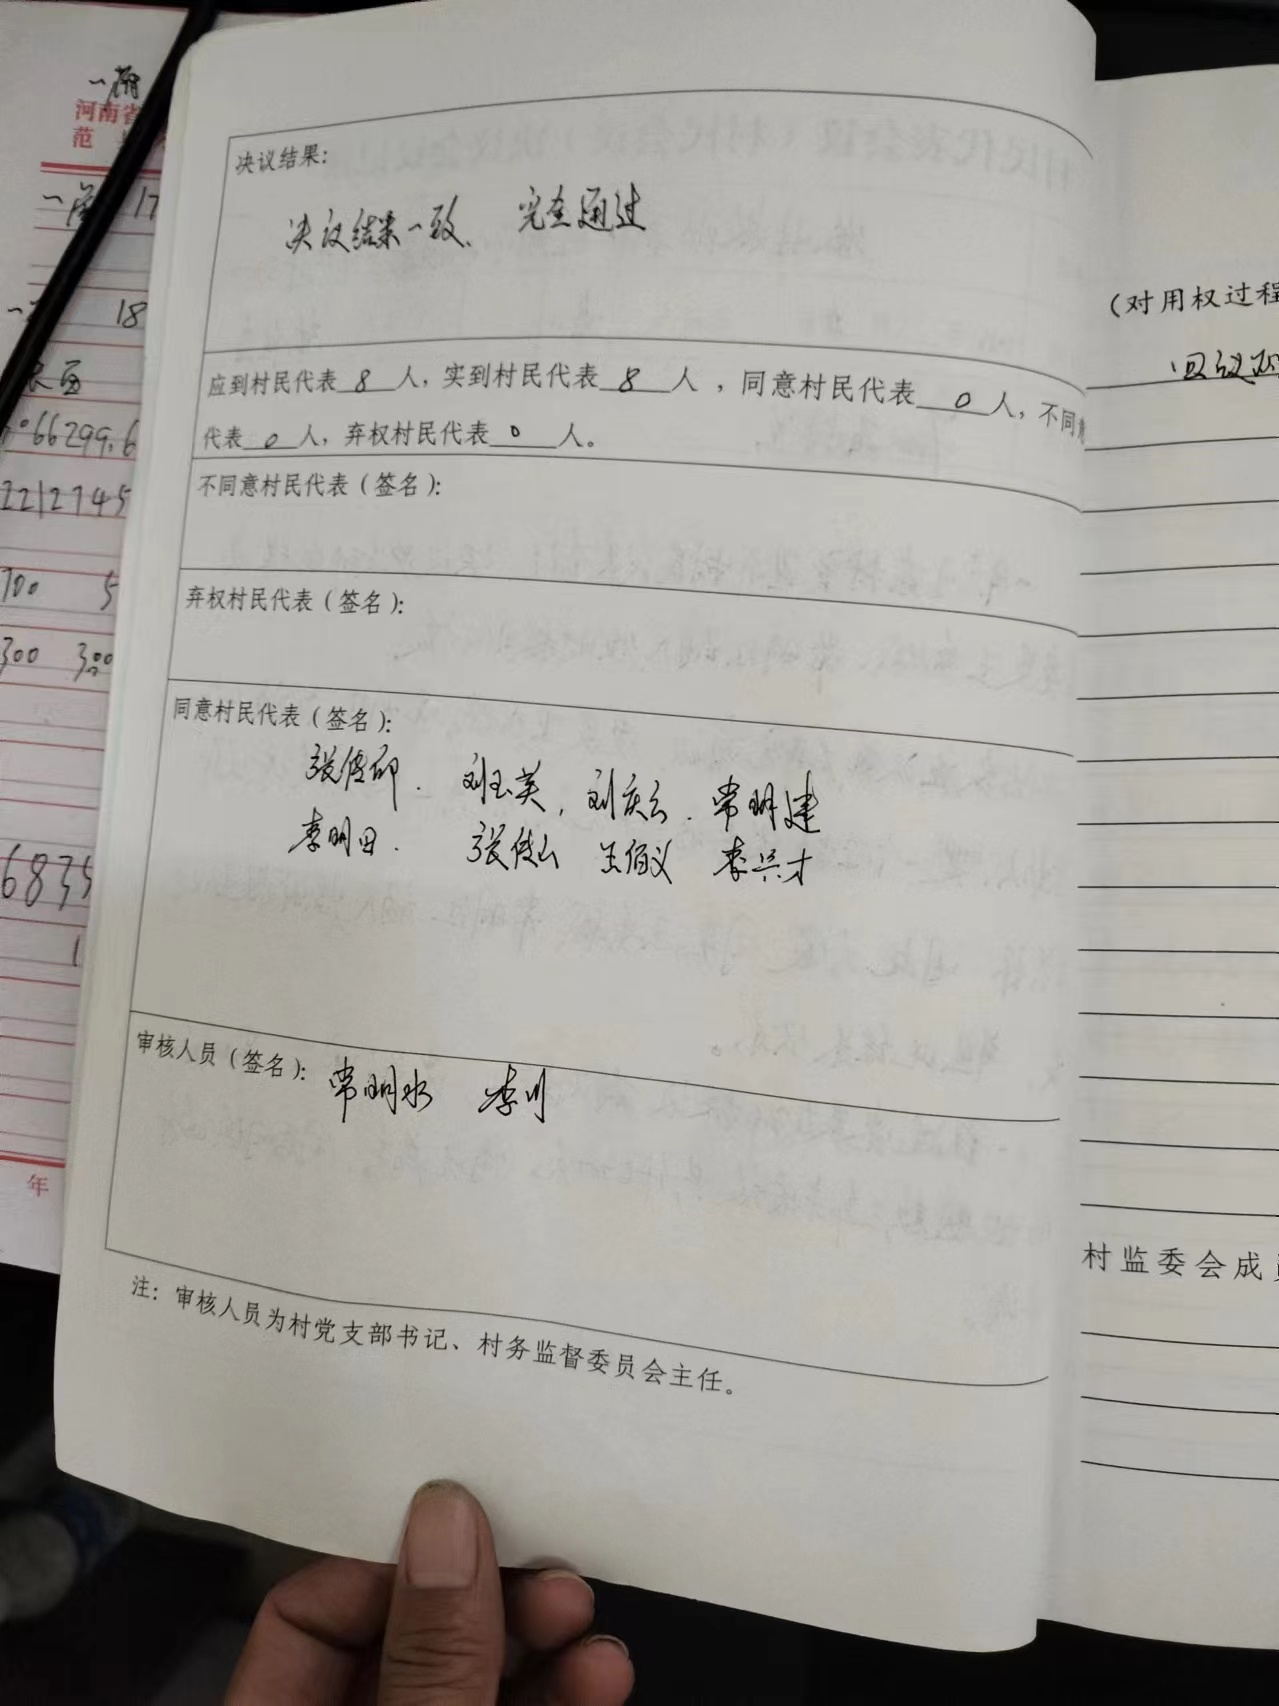 决议结果:
决议结果一致、完全通过
应到村民代表 8 人，实到村民代表 8 人，同意村民代表 0 人，不同意
代表 0 人，弃权村民代表 0 人。
不同意村民代表（签名）:
弃权村民代表（签名）:
同意村民代表（签名）:
刘玉英，刘庆云．常明建
李明田．张传山 王佰义 李兴才
审核人员（签名）: 常明水 李川
注：审核人员为村党支部书记、村务监督委员会主任。
河南省
范
17
18
66299.6
2212745
700 5
300 300
6835
1
年
（对用权过程
村监委会成